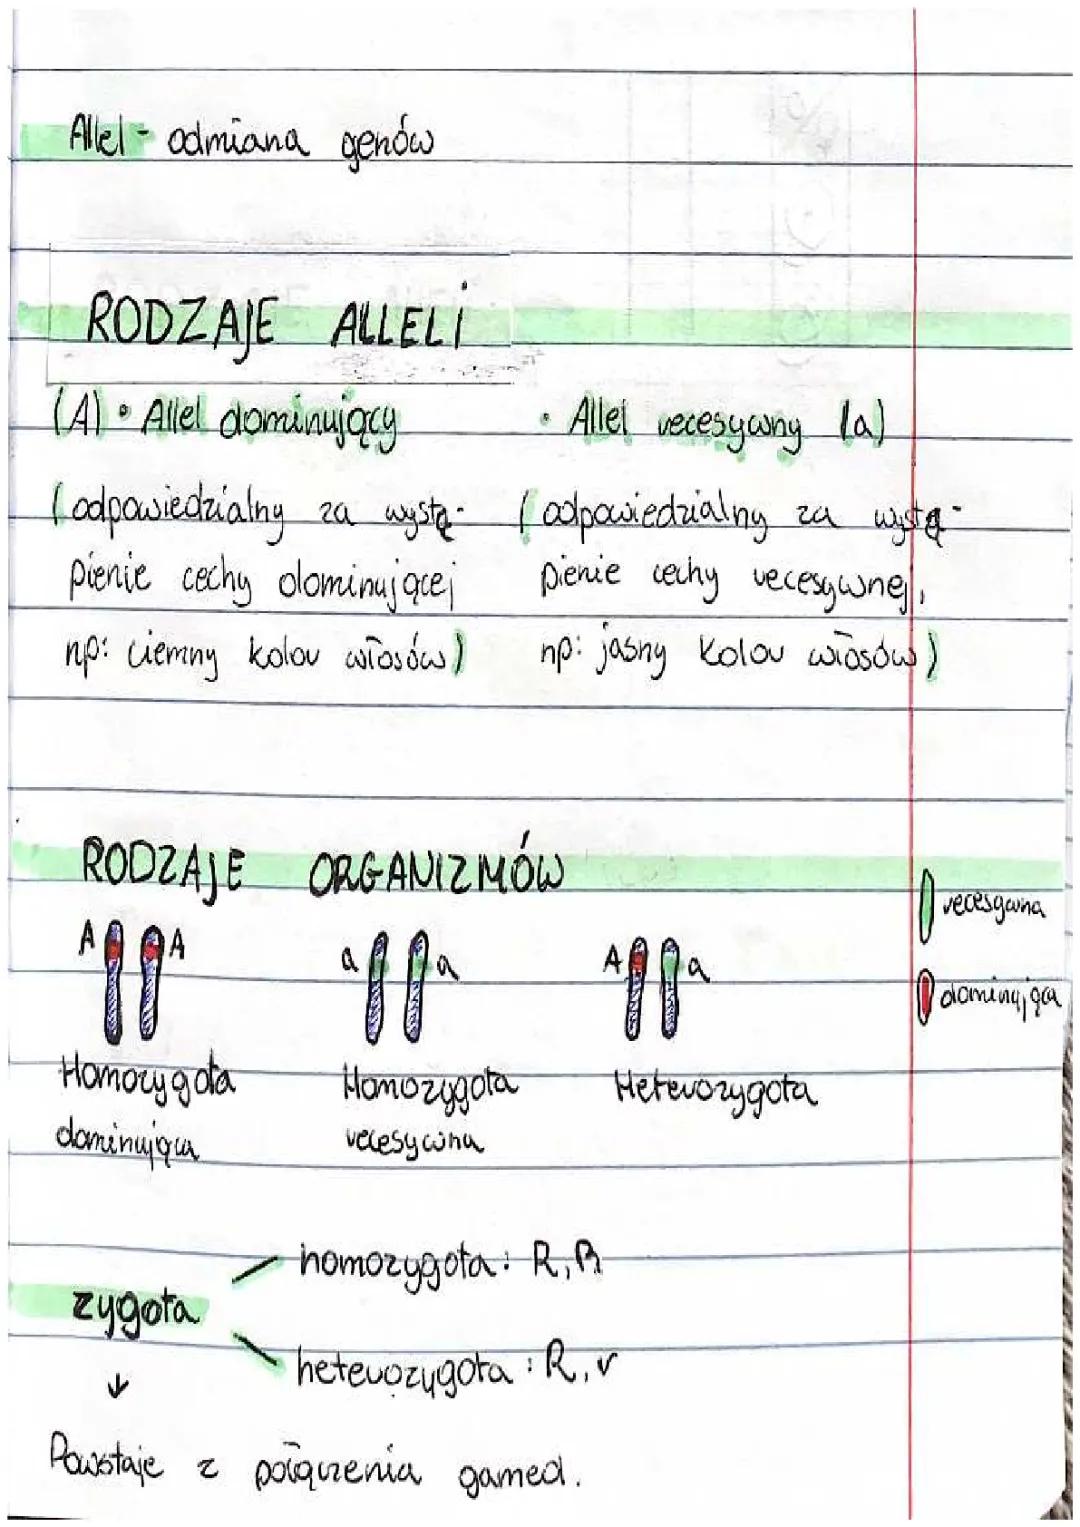 Allel - odmiana genów
RODZAJE ALLELI
(A) • Allel dominujący
(odpowiedzialny za wystę-
pienie cechy dominującej
np: ciemny kolor włosów)
• Allel recesywny (a)
(odpowiedzialny za wystę-
pienie cechy recesywnej,
np: jasny kolor włosów)
RODZAJE ORGANIZMÓW
recesywna
dominująca
A A
a a
A a
Homozygota
dominująca
Homozygota
recesywna
Heterozygota
zygota
homozygota: R, R
heterozygota: R, r
↓
Powstaje z połączenia gamed.